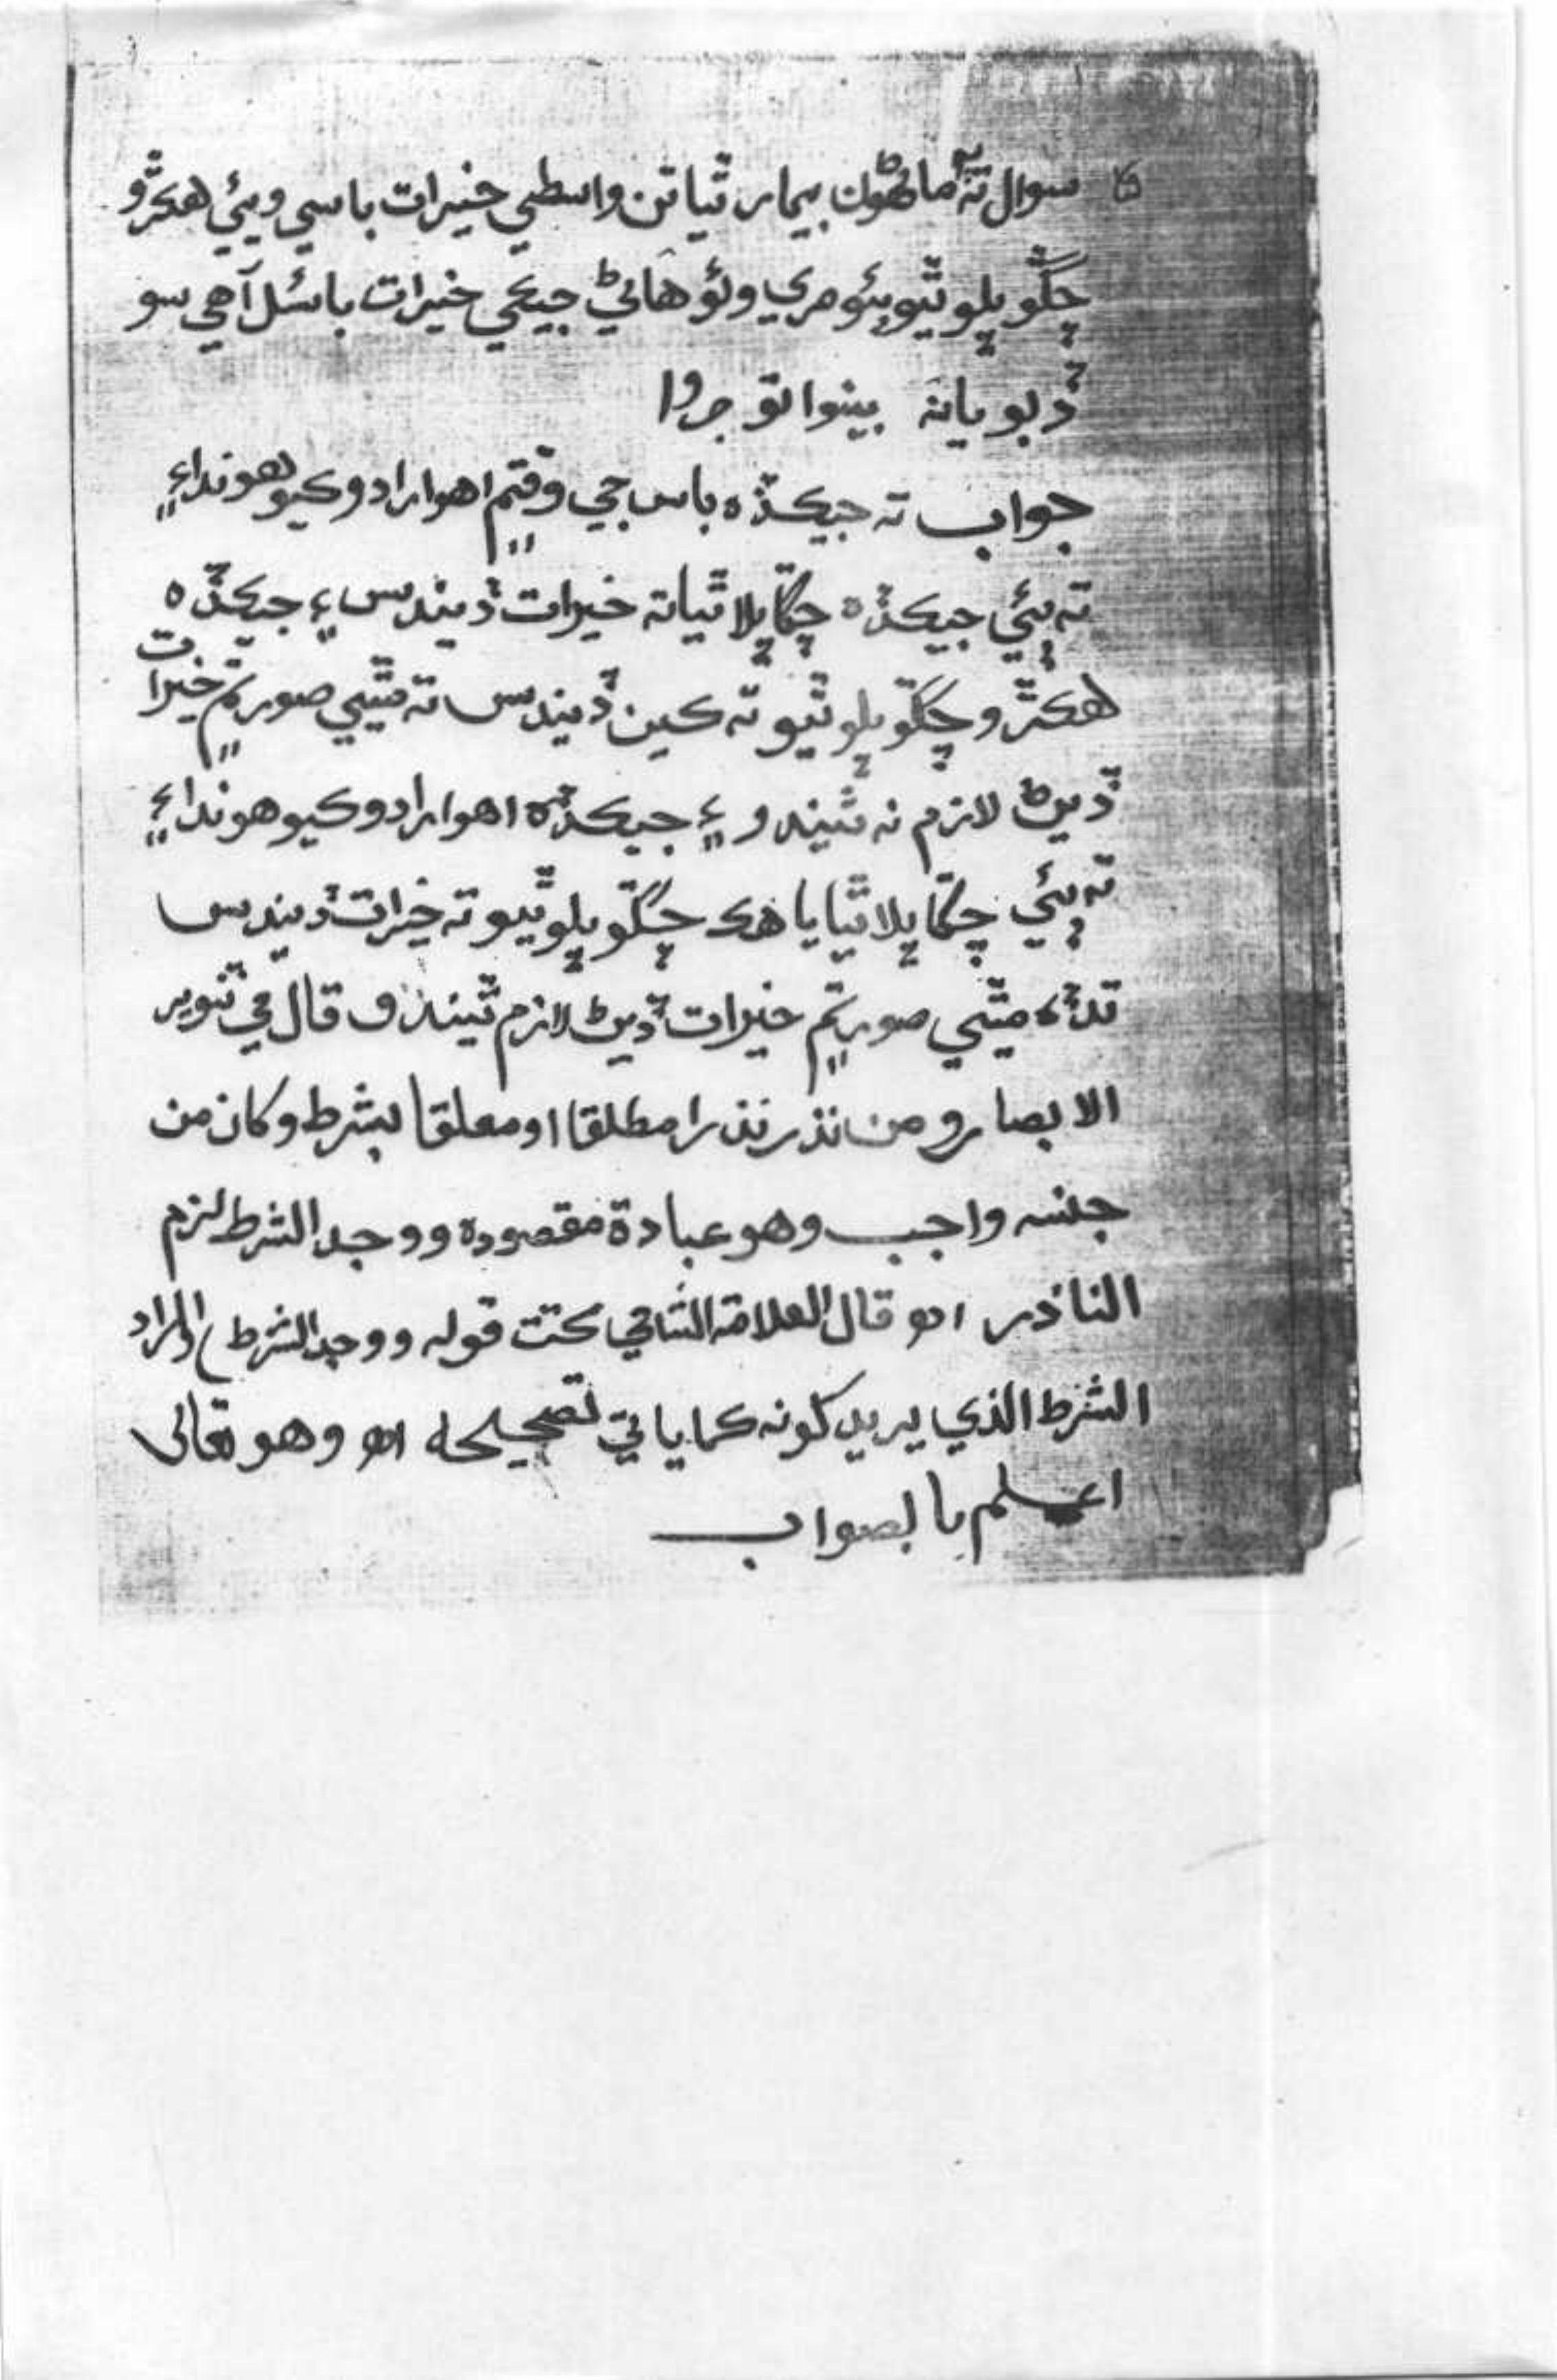 سوال ته ٻه ماڻهون بيمار ٿيا تن واسطي خيرات باسي ويئي هڪڙو
چڱو ڀلو ٿيو ٻئو مري وئو هاڻي جيڪي خيرات باسئل آهي سو
ڏبو يا نه بينوا توجروا
جواب ته جيڪڏه باس جي وقتم اهو ارادو ڪيو هوندائ
ته ٻئي جيڪڏه چڱا ڀلا ٿيا ته خيرات ڏيندس ۽ جيڪڏه
هڪڙو چڱو ڀلو ٿيو ته ڪين ڏيندس ته مٿيي صورتم خيرات
ڏيڻ لازم نه ٿيندو ۽ جيڪڏه اهو ارادو ڪيو هوندائ
ته ٻئي چڱا ڀلا ٿيا يا هڪ چڱو ڀلو ٿيو ته خيرات ڏيندس
تڏه مٿيي صورتم خيرات ڏيڻ لازم ٿيندو قال في تنوير
الابصار و من نذر نذرا مطلقا او معلقا بشرط و كان من
جنسه واجب وهو عبادة مقصوده و وجد الشرط لزم
الناذر اھ قال العلامة الشامي تحت قوله و وجد الشرط اي المراد
الشرط الذي يريد كونه كما ياتي تصحيحه اھ وهو تعالى
اعلم بالصواب